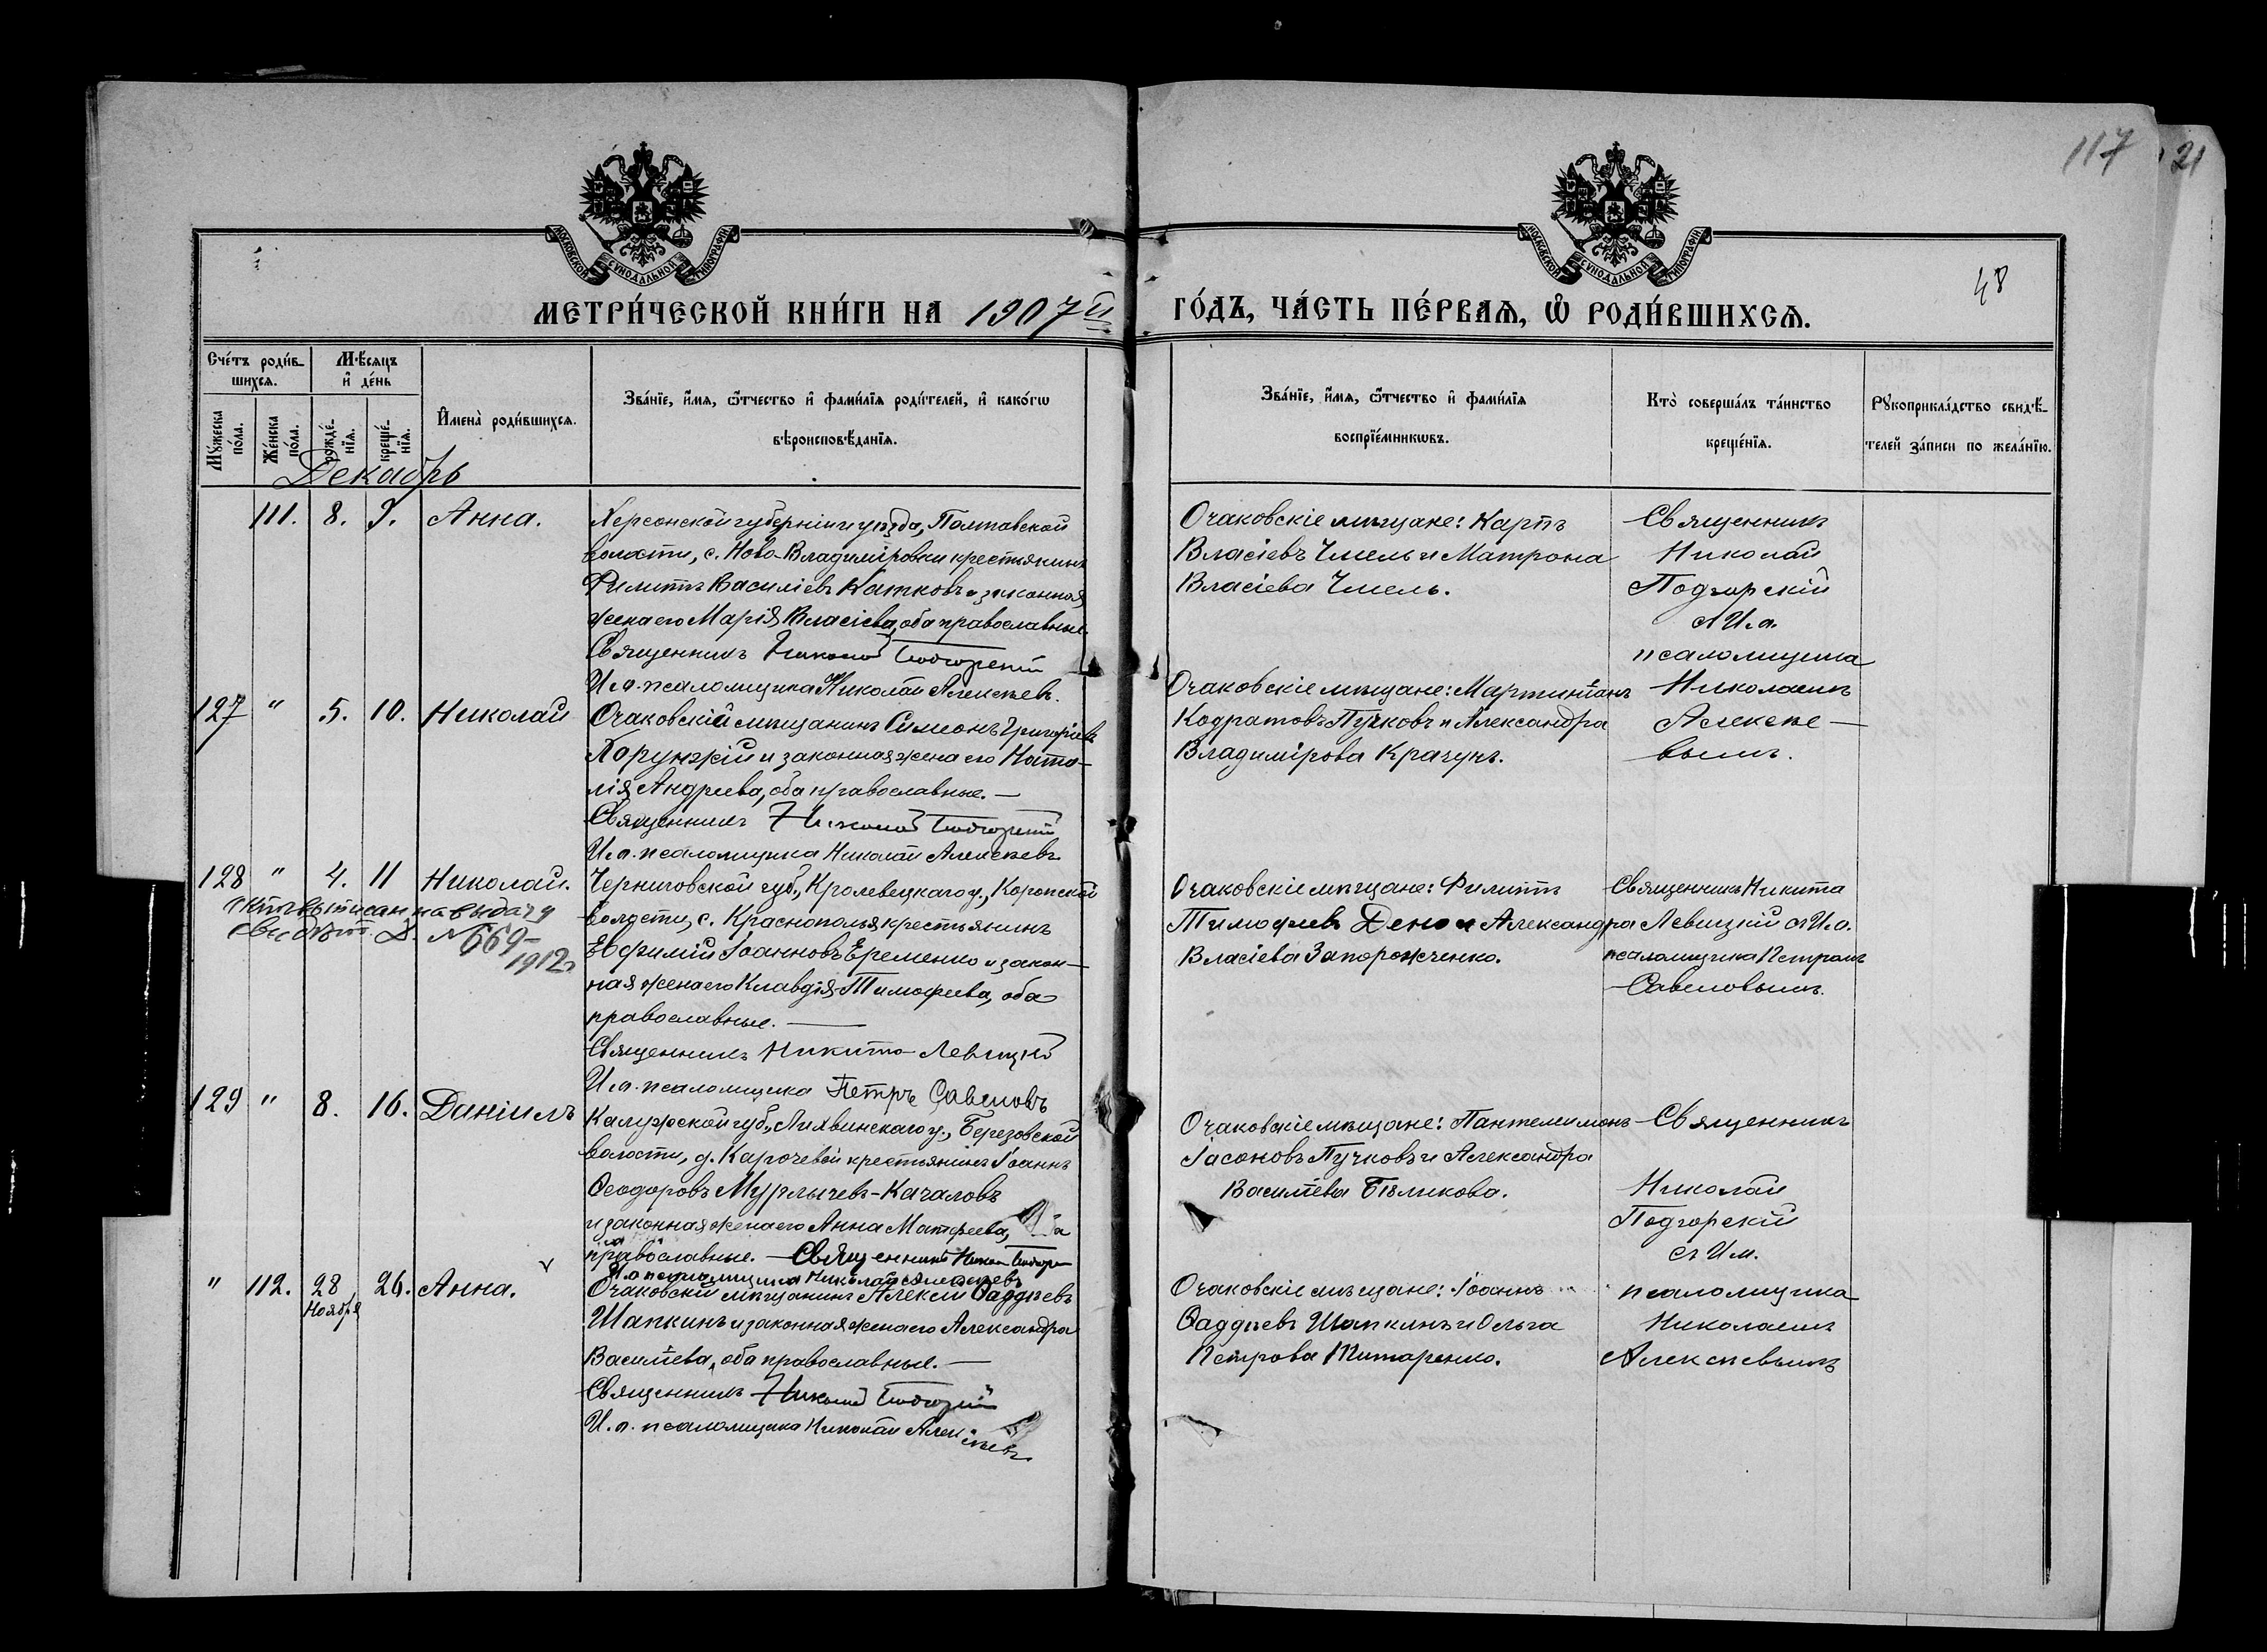 117
21
48
МОСКОВСКОЙ СѴНОДАЛЬНОЙ ТИПОГРАФІИ
МОСКОВСКОЙ СѴНОДАЛЬНОЙ ТИПОГРАФІИ
МЕТРИ́ЧЕСКОЙ КНИ́ГИ НА 1907й
ГО́ДЪ, ЧА́СТЬ ПЕ́РВАѦ, Ѡ҆ РОДИ́ВШИХСѦ.
Сче́тъ роди́в-
шихсѧ.
Мѣ́сѧцъ
и҆ де́нь
Мꙋ́жеска по́ла.
Же́нска по́ла.
рожде́нїѧ.
креще́нїѧ.
И҆мена̀ роди́вшихсѧ.
Зва́нїе, и҆́мѧ, ѻ҆́тчество и҆ фами́лїѧ роди́телей, и҆ како́гѡ
вѣроисповѣ́данїѧ.
Зва́нїе, и҆́мѧ, ѻ҆́тчество и҆ фами́лїѧ
воспрїе́мникѡвъ.
Кто̀ соверша́лъ та́инство
креще́нїѧ.
Рꙋкоприкла́дство свидѣ́-
телей за́писи по жела́нїю.
Декабрь
111. 8. 9. Анна.
Херсонской губерніи и уѣзда, Полтавской
волости, с. Ново-Владиміровки крестьянинъ
Филиппъ Василіевъ Катковъ и законная
жена его Марія Власіева, оба православные.
Священникъ Николай Подгорскій
И. д. псаломщика Николай Алексѣевъ.
Очаковскіе мѣщане: Карпъ
Власіевъ Чмель и Матрона
Власіева Чмель.
Священникъ
Николай
Подгорскій
съ И. д.
псаломщика
Николаемъ
Алексѣе-
вымъ.
127 " 5. 10. Николай
Очаковскій мѣщанинъ Симеонъ Григоріевъ
Хорунжій и законная жена его Ната-
лія Андреева, оба православные. —
Священникъ Николай Подгорскій
И. д. псаломщика Николай Алексѣевъ
Очаковскіе мѣщане: Мартиніанъ
Кодратовъ Пучковъ и Александра
Владимірова Крачунъ.
128 " 4. 11 Николай.
Актъ выписан на выдачу
свидѣт. Д. №669-
1912г
Черниговской губ., Кролевецкаго у., Коропской
волости, с. Краснополья крестьянинъ
Евфимій Іоанновъ Еременко и закон-
ная жена его Клавдія Тимофеева, оба
православные. —
Священникъ Никита Левицкій
И. д. псаломщика Петръ Савеловъ
Очаковскіе мѣщане: Филиппъ
Тимофеевъ Дено и Александра
Власіева Запорожченко.
Священникъ Никита
Левицкій съ И. д.
псаломщика Петромъ
Савеловымъ.
129 " 8. 16. Даніилъ
Калужской губ., Лихвинскаго у., Березовской
волости, д. Карочевой крестьянинъ Іоаннъ
Ѳеодоровъ Мурлычевъ-Качаловъ
и законная жена его Анна Матфеева,
православные. — Священникъ Никол Подгор
И д псаломщика Николай Алексѣевъ
Очаковскіе мѣщане: Пантелимонъ
Іасоновъ Пучковъ и Александра
Василіева Бѣликова.
Священникъ
Николай
Подгорскій
съ И. д.
псаломщика
Николаемъ
Алексѣевымъ
" 112. 28 26. Анна.
Ноября
Очаковскій мѣщанинъ Алексій Ѳаддѣевъ
Шапкинъ и законная жена его Александра
Василіева, оба православные. —
Священникъ Николай Подгорскій
И. д. псаломщика Николай Алексѣевъ
Очаковскіе мѣщане: Іоаннъ
Ѳаддѣевъ Шапкинъ и Ольга
Петрова Титаренко.